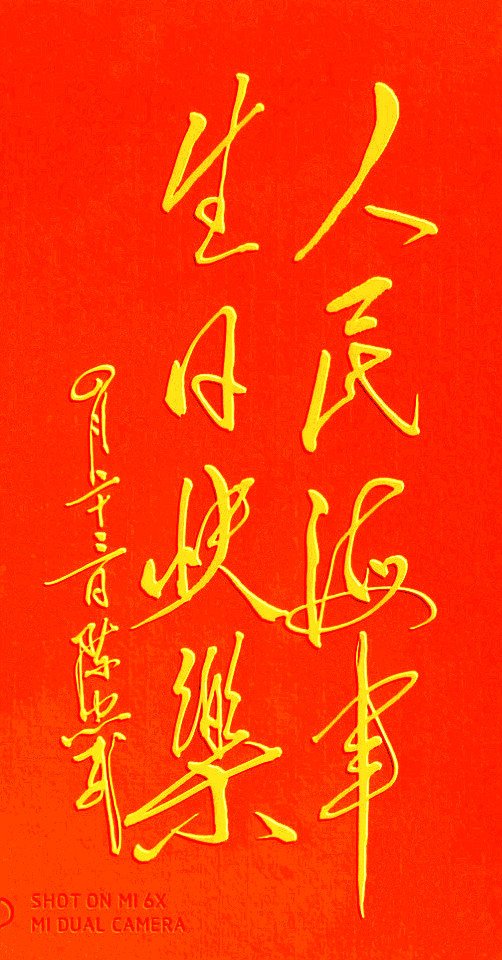 人民海军
生日快樂
四月二十三日 陈
SHOT ON MI 6X
MI DUAL CAMERA